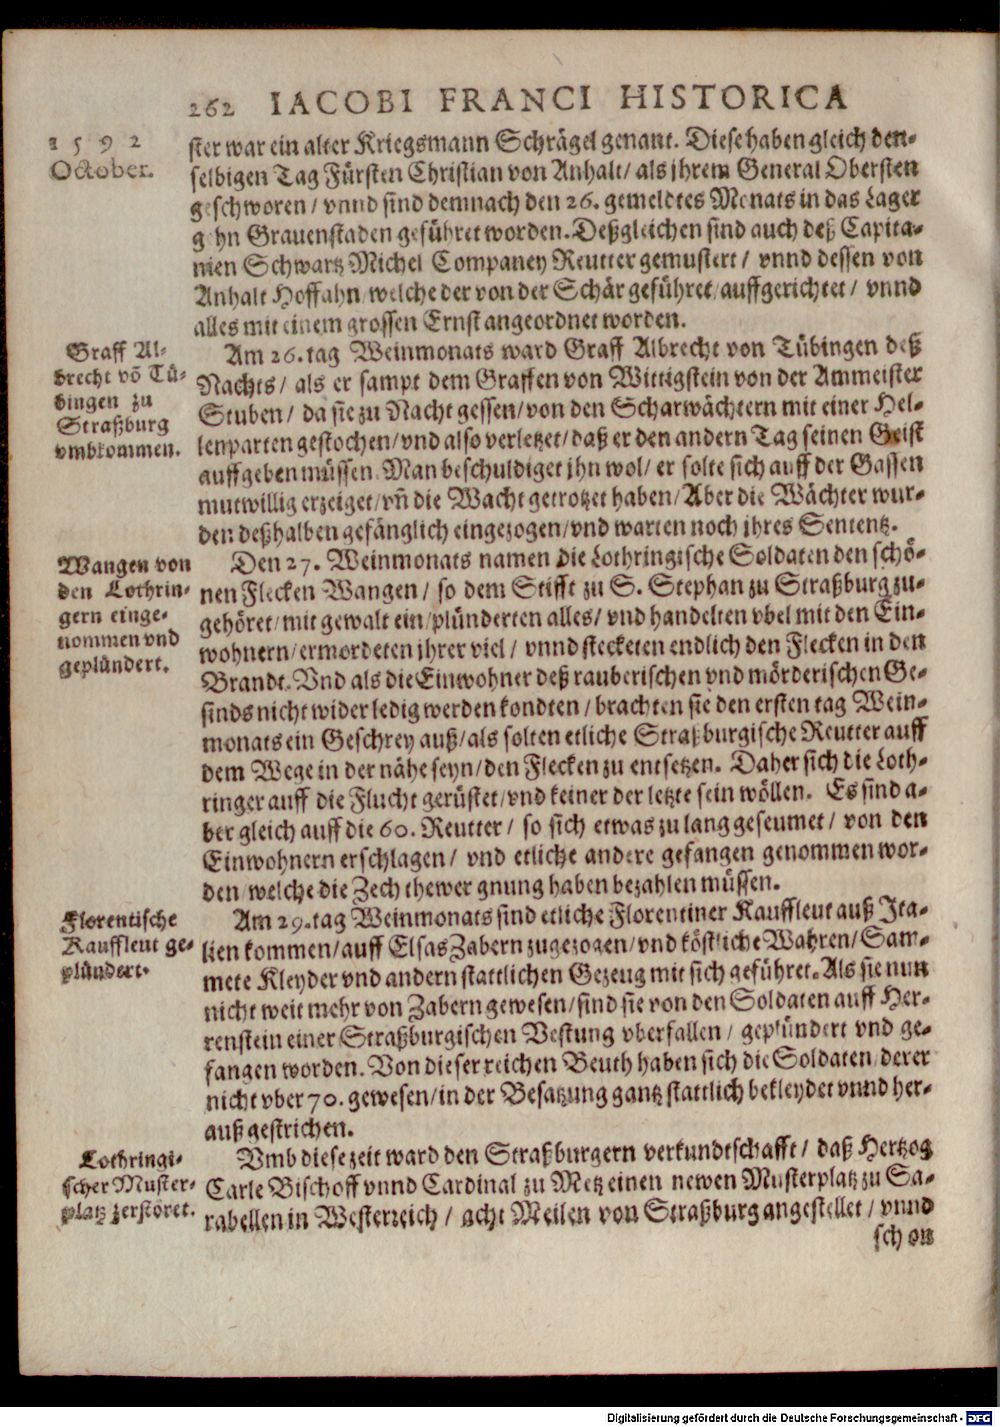 262 IACOBI FRANCI HISTORICA
1592
October.
ster war ein alter Kriegsmann Schrägel genant. Diese haben gleich den-
selbigen Tag Fürsten Christian von Anhalt/ als jhrem General Obersten
geschworen/ vnnd sind demnach den 26. gemeldtes Monats in das Lager
gehn Grauenstaden geführet worden. Deßgleichen sind auch deß Capita-
nien Schwartz Michel Companey Reutter gemustert/ vnnd dessen von
Anhalt Hoffahn/ welche der von der Schär geführet/ auffgerichtet/ vnnd
alles mit einem grossen Ernst angeordnet worden.
Graff Al-
brecht võ Tü-
bingen zu
Straßburg
vmbkommen.
Am 26. tag Weinmonats ward Graff Albrecht von Tübingen deß
Nachts/ als er sampt dem Graffen von Wittigstein von der Ammeister
Stuben/ da sie zu Nacht gessen/ von den Scharwächtern mit einer Hel-
lenparten gestochen/ vnd also verletzet/ daß er den andern Tag seinen Geist
auffgeben müssen. Man beschuldiget jhn wol/ er solte sich auff der Gassen
mutwillig erzeiget/ vñ die Wacht getrotzet haben/ Aber die Wächter wur-
den deßhalben gefänglich eingezogen/ vnd warten noch jhres Sententz.
Wangen von
den Lothrin-
gern einge-
nommen vnd
geplündert.
Den 27. Weinmonats namen die Lothringische Soldaten den schö-
nen Flecken Wangen/ so dem Stifft zu S. Stephan zu Straßburg zu-
gehöret/ mit gewalt ein/ plünderten alles/ vnd handelten vbel mit den Ein-
wohnern/ ermordeten jhrer viel/ vnnd stecketen endlich den Flecken in den
Brandt. Vnd als die Einwohner deß rauberischen vnd mörderischen Ge-
sinds nicht wider ledig werden kondten/ brachten sie den ersten tag Wein-
monats ein Geschrey auß/ als solten etliche Straßburgische Reutter auff
dem Wege in der nähe seyn/ den Flecken zu entsetzen. Daher sich die Loth-
ringer auff die Flucht gerüstet/ vnd keiner der letzte sein wöllen. Es sind a-
ber gleich auff die 60. Reutter/ so sich etwas zu lang geseumet/ von den
Einwohnern erschlagen/ vnd etliche andere gefangen genommen wor-
den/ welche die Zech thewer gnung haben bezahlen müssen.
Florentische
Kauffleut ge-
plündert.
Am 29. tag Weinmonats sind etliche Florentiner Kauffleut auß Ita-
lien kommen/ auff Elsas Zabern zugezogen/ vnd köstliche Wahren/ Sam-
mete Kleyder vnd andern stattlichen Gezeug mit sich geführet. Als sie nun
nicht weit mehr von Zabern gewesen/ sind sie von den Soldaten auff Her-
renstein einer Straßburgischen Vestung vberfallen/ geplündert vnd ge-
fangen worden. Von dieser reichen Beuth haben sich die Soldaten/ derer
nicht vber 70. gewesen/ in der Besatzung gantz stattlich bekleydet vnnd her-
auß gestrichen.
Lothringi-
scher Muster-
platz zerstöret.
Vmb diese zeit ward den Straßburgern verkundtschafft/ daß Hertzog
Carle Bischoff vnnd Cardinal zu Metz einen newen Musterplatz zu Sa-
rabellen in Westerreich/ acht Meilen von Straßburg angestellet/ vnnd
schon
Digitalisierung gefördert durch die Deutsche Forschungsgemeinschaft - DFG